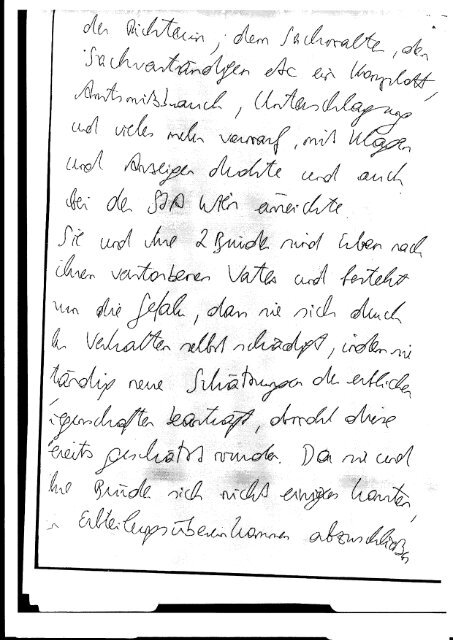 der Richterin, dem Sachwalter, den
Sachverständigen etc ein Komplott,
Amtsmißbrauch, Unterschlagung
und vieles mehr vorwarf, mit Klagen
und Anzeigen drohte und auch
bei der StA Wien einreichte.
Sie und ihre 2 Brüder sind Erben nach
ihren verstorbenen Vater und besteht
nun die Gefahr, dass sie sich durch
ihr Verhalten selbst schädigt, indem sie
ständig neue Schätzungen der erblichen
igenschaften beantragt, obwohl diese
ereits geschätzt wurden. Da sie und
ihre Brüder sich nicht einigen konnten,
n Erbteilungsübereinkommen abzuschließen